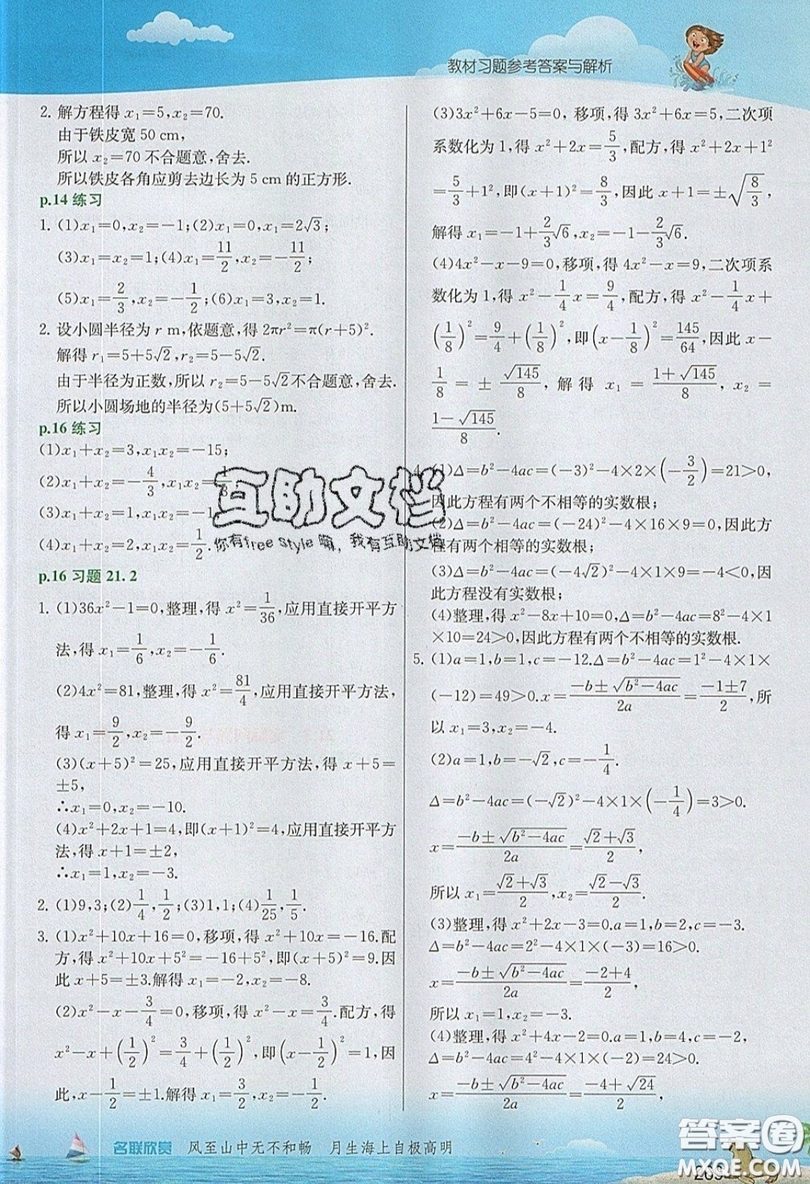 教材习题参考答案与解析
2. 解方程得 x₁=5,x₂=70.
由于铁皮宽 50 cm,
所以 x₂=70 不合题意,舍去.
所以铁皮各角应剪去边长为 5 cm 的正方形.
p.14 练习
1. (1)x₁=0,x₂=-1;(2)x₁=0,x₂=2√3;
(3)x₁=x₂=1;(4)x₁=11/2,x₂=-11/2;
(5)x₁=2/3,x₂=-1/2;(6)x₁=3,x₂=1.
2. 设小圆半径为 r m,依题意,得 2πr²=π(r+5)².
解得 r₁=5+5√2,r₂=5-5√2.
由于半径为正数,所以 r=5-5√2 不合题意,舍去.
所以小圆场地的半径为(5+5√2)m.
p.16 练习
(1)x₁+x₂=3,x₁x₂=-15;
(2)x₁+x₂=-4/3,x₁x₂=
(3)x₁+x₂=1,x₁x₂=-1
(4)x₁+x₂=2,x₁x₂=1/2.
p.16 习题 21.2
1. (1)36x²-1=0,整理,得 x²=1/36,应用直接开平方
法,得 x₁=1/6,x₂=-1/6.
(2)4x²=81,整理,得 x²=81/4,应用直接开平方法,
得 x₁=9/2,x₂=-9/2.
(3)(x+5)²=25,应用直接开平方法,得 x+5=
±5,
∴x₁=0,x₂=-10.
(4)x²+2x+1=4,即(x+1)²=4,应用直接开平方
法,得 x+1=±2,
∴x₁=1,x₂=-3.
2. (1)9,3;(2)1/4,1/2;(3)1,1;(4)1/25,1/5.
3. (1)x²+10x+16=0,移项,得 x²+10x=-16.配
方,得 x²+10x+5²=-16+5²,即(x+5)²=9.因
此 x+5=±3.解得 x₁=-2,x₂=-8.
(2)x²-x-3/4=0,移项,得 x²-x=3/4.配方,得
x²-x+(1/2)²=3/4+(1/2)²,即(x-1/2)²=1,因
此,x-1/2=±1.解得 x₁=3/2,x₂=-1/2.
(3)3x²+6x-5=0, 移项,得 3x²+6x=5,二次项
系数化为 1,得 x²+2x=5/3,配方,得 x²+2x+1²
=5/3+1²,即(x+1)²=8/3,因此 x+1=±√(8/3),
解得 x₁=-1+2/3√6,x₂=-1-2/3√6.
(4)4x²-x-9=0,移项,得 4x²-x=9,二次项系
数化为 1,得 x²-1/4x=9/4,配方,得 x²-1/4x+
(1/8)²=9/4+(1/8)²,即(x-1/8)²=145/64,因此 x-
1/8=±√145/8,解得 x₁=(1+√145)/8,x₂=
(1-√145)/8.
4. (1)Δ=b²-4ac=(-3)²-4×2×(-3/2)=21>0,
因此方程有两个不相等的实数根;
(2)Δ=b²-4ac=(-24)²-4×16×9=0,因此方
程有两个相等的实数根;
(3)Δ=b²-4ac=(-4√2)²-4×1×9=-4<0,因
此方程没有实数根;
(4)整理,得 x²-8x+10=0,Δ=b²-4ac=8²-4×1
×10=24>0,因此方程有两个不相等的实数根.
5. (1)a=1,b=1,c=-12.Δ=b²-4ac=1²-4×1×
(-12)=49>0.x=(-b±√(b²-4ac))/2a=(-1±7)/2,所
以 x₁=3,x₂=-4.
(2)a=1,b=-√2,c=-1/4.
Δ=b²-4ac=(-√2)²-4×1×(-1/4)=3>0.
x=(-b±√(b²-4ac))/2a=(√2±√3)/2,
所以 x₁=(√2+√3)/2,x₂=(√2-√3)/2.
(3)整理,得 x²+2x-3=0.a=1,b=2,c=-3.
Δ=b²-4ac=2²-4×1×(-3)=16>0.
x=(-b±√(b²-4ac))/2a=(-2±4)/2,
所以 x₁=1,x₂=-3.
(4)整理,得 x²+4x-2=0.a=1,b=4,c=-2.
Δ=b²-4ac=4²-4×1×(-2)=24>0.
x=(-b±√(b²-4ac))/2a=(-4±√24)/2,
互助文档
你有free style嘛,我有互助文档
名联欣赏 风至山中无不和畅 月生海上自极高明
答案圈
MXQE.COM